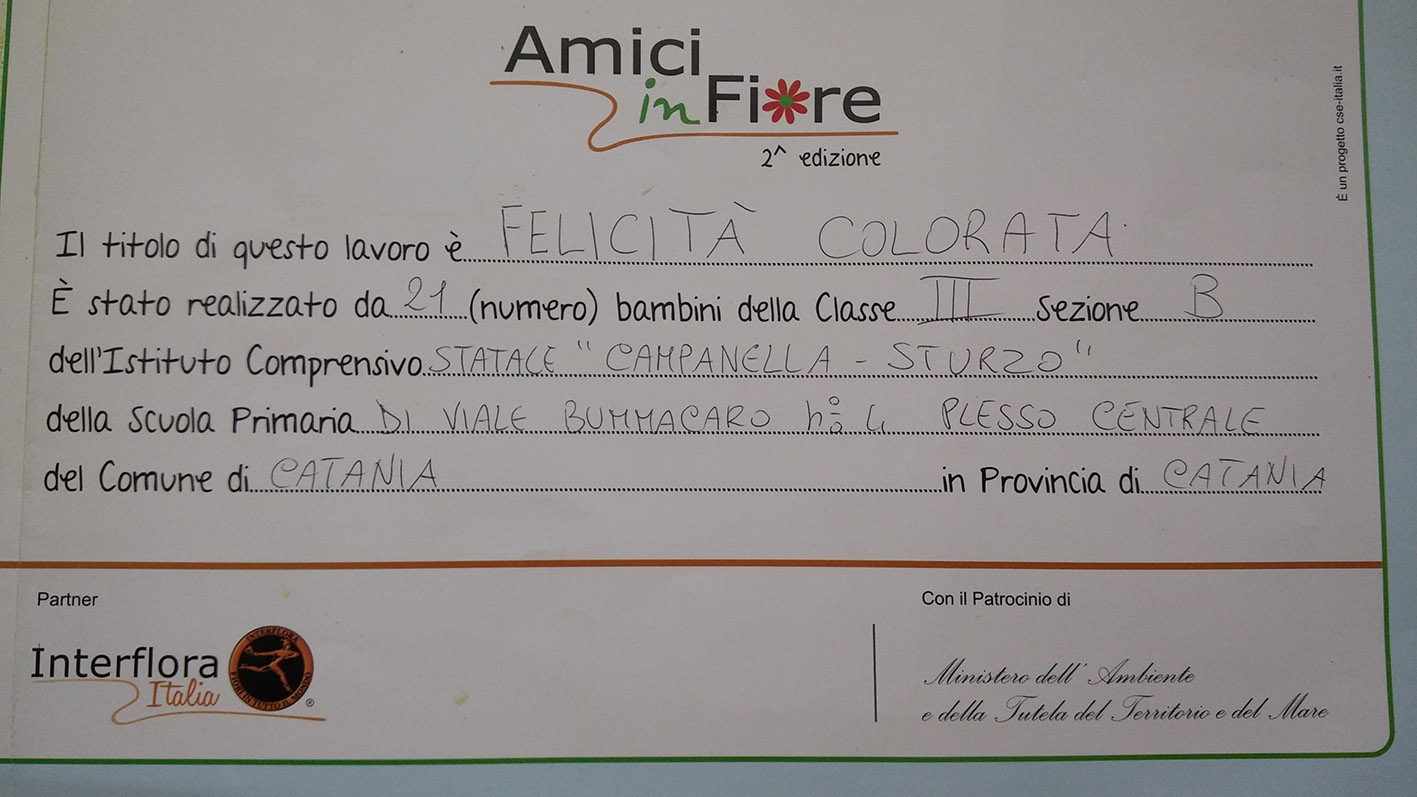 Amici
in Fiore
2^ edizione
È un progetto cse-italia.it
Il titolo di questo lavoro è FELICITÀ COLORATA
È stato realizzato da 21 (numero) bambini della Classe III Sezione B
dell'Istituto Comprensivo STATALE "CAMPANELLA - STURZO"
della Scuola Primaria DI VIALE BUMMACARO n° 4 PLESSO CENTRALE
del Comune di CATANIA in Provincia di CATANIA
Partner
Con il Patrocinio di
Interflora
Italia
INTERFLORA
FIORI IN TUTTO IL MONDO
®
Ministero dell'Ambiente
e della Tutela del Territorio e del Mare